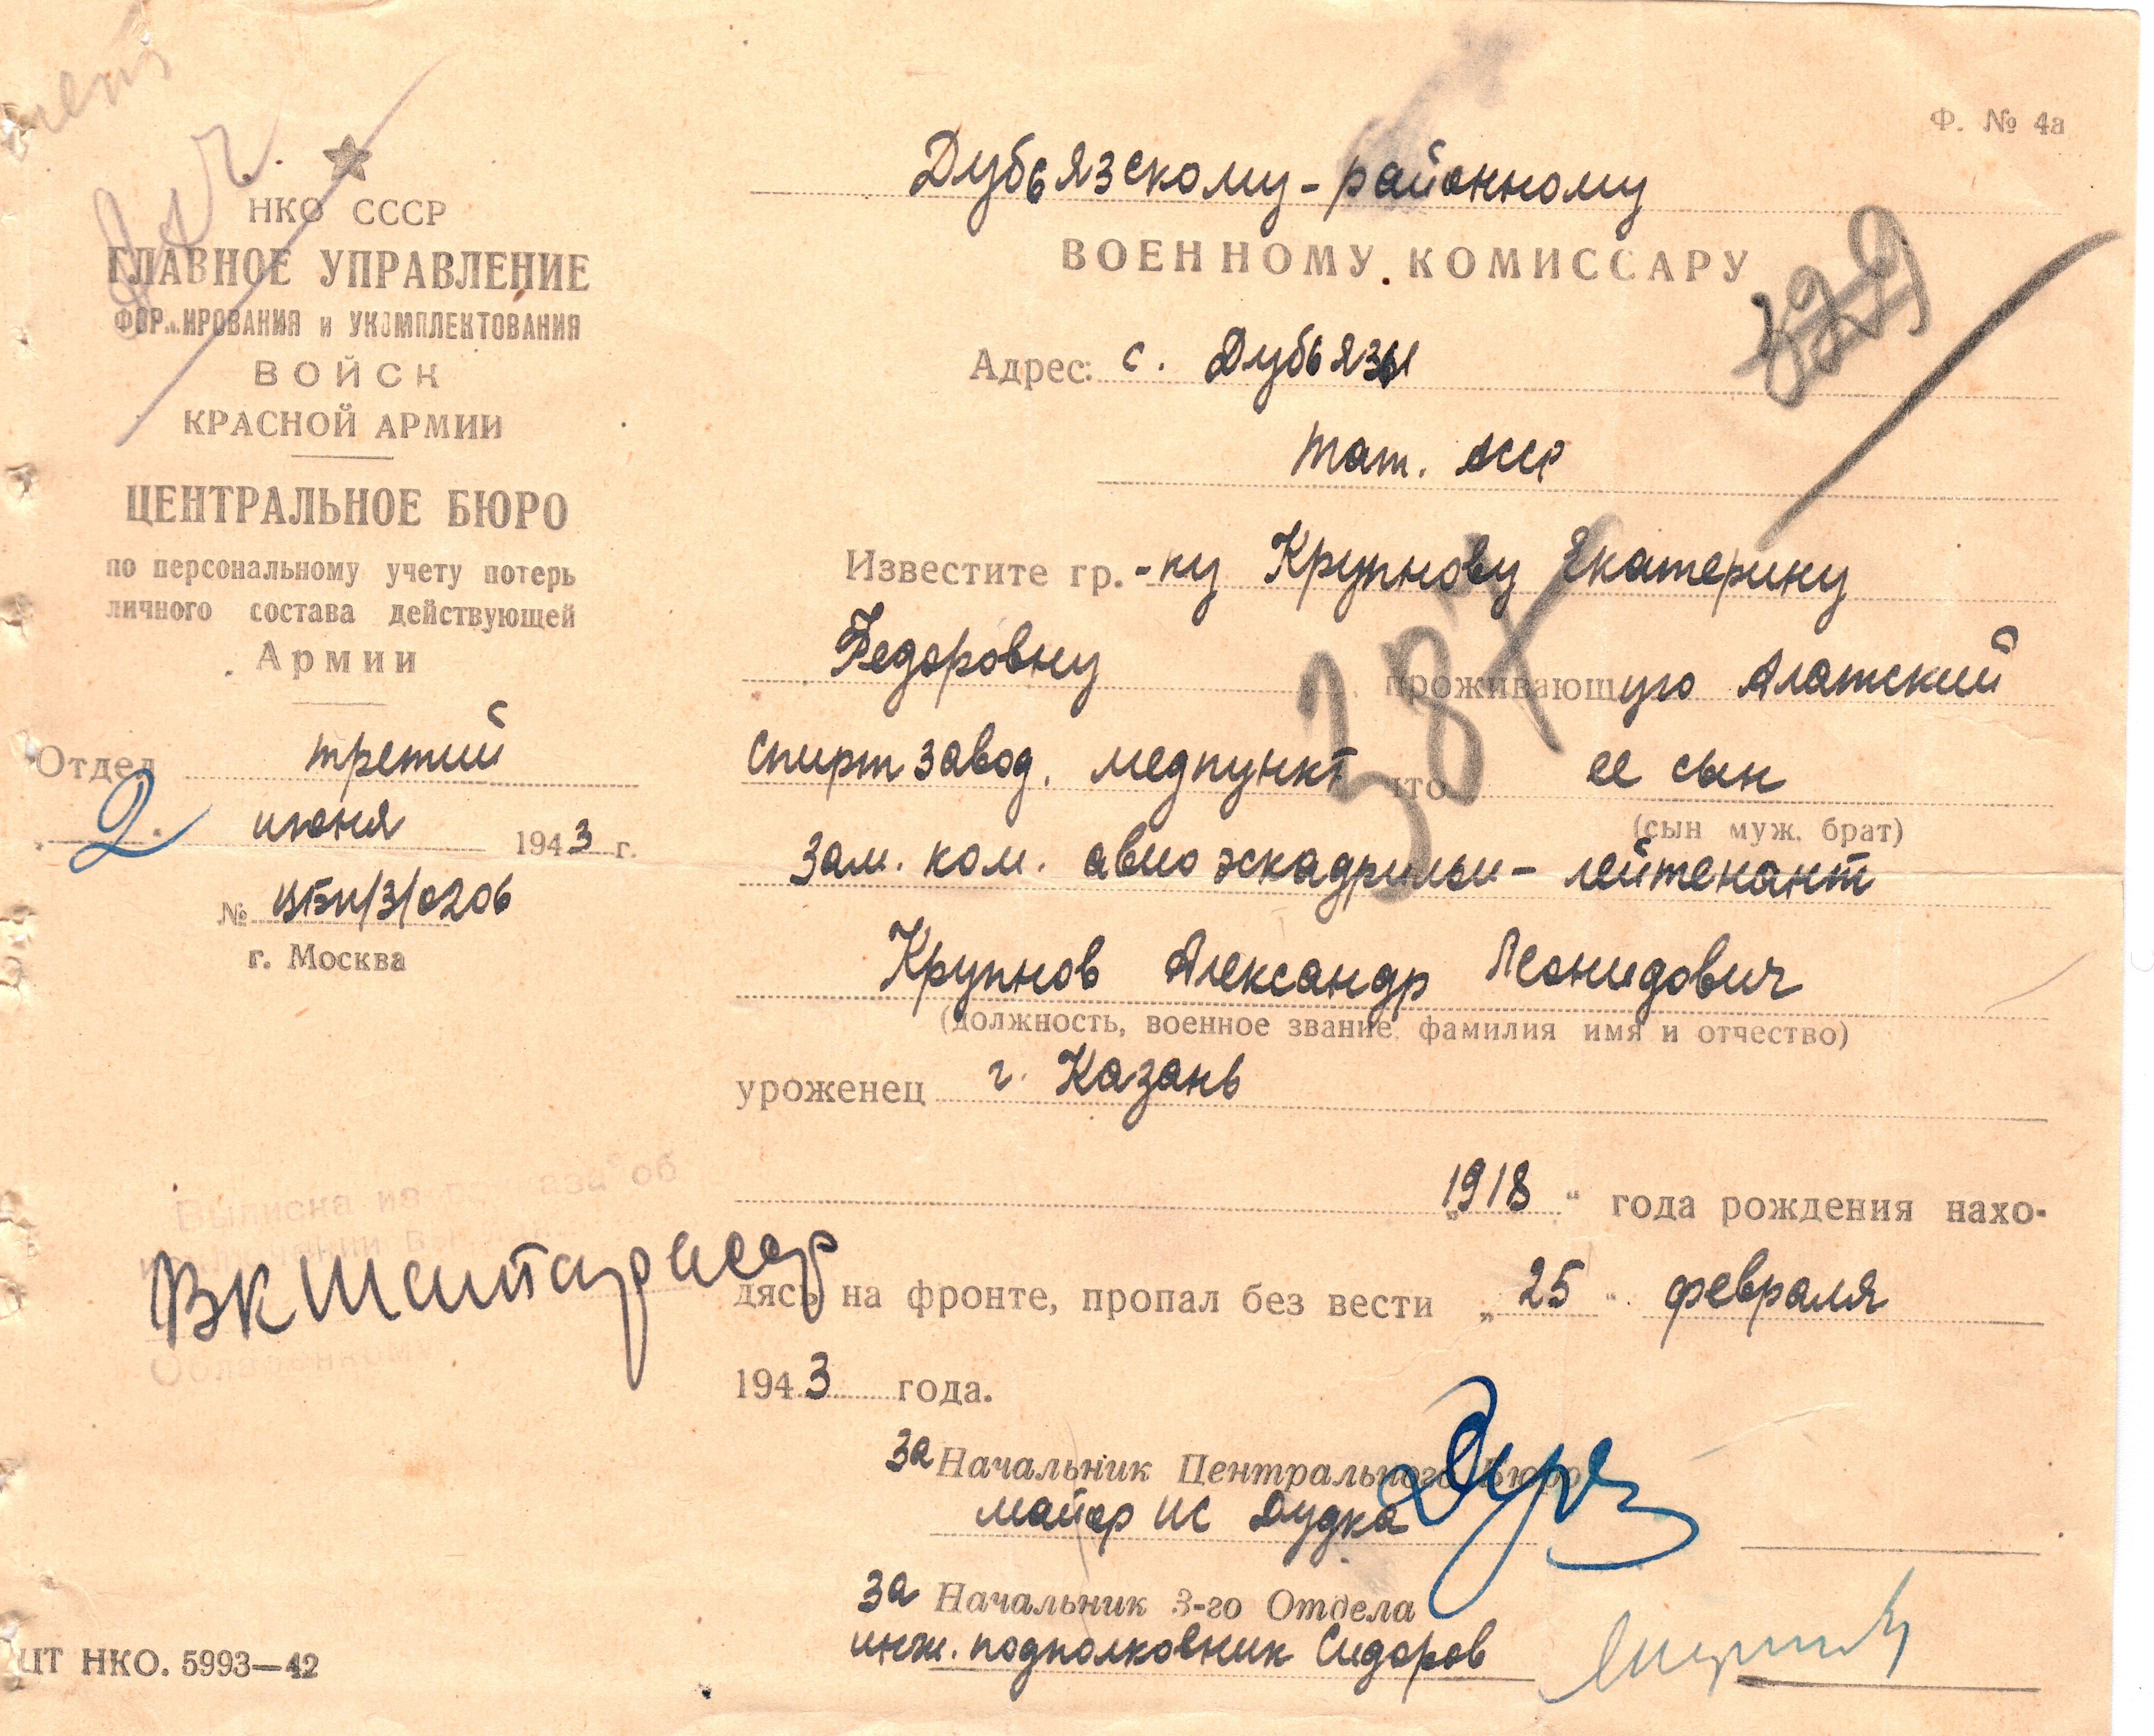 Ф. № 4а
НКО СССР
ГЛАВНОЕ УПРАВЛЕНИЕ
ФОРМИРОВАНИЯ и УКОМПЛЕКТОВАНИЯ
ВОЙСК
КРАСНОЙ АРМИИ
ЦЕНТРАЛЬНОЕ БЮРО
по персональному учету потерь
личного состава действующей
Армии
Отдел третий
2 июня 1943 г.
№ ЦБП/3/0206
г. Москва
Выписка из приказа об
ШТ НКО. 5993—42
Дубьязскому-районному
ВОЕННОМУ КОМИССАРУ
329
Адрес: с. Дубьязы
Тат. АССР
Известите гр.-ку Крупнову Екатерину
Федоровну проживающую Алатский
спирт завод. медпункт что ее сын
(сын муж. брат)
зам. ком. авиоэскадрильи - лейтенант
Крупнов Александр Леонидович
(должность, военное звание, фамилия имя и отчество)
уроженец г. Казань
„1918“ года рождения нахо-
дясь на фронте, пропал без вести „25“ февраля
1943 года.
За Начальник Центрального Бюро
майор ИС Дудка
За Начальник 3-го Отдела
инж. подполковник Сидоров